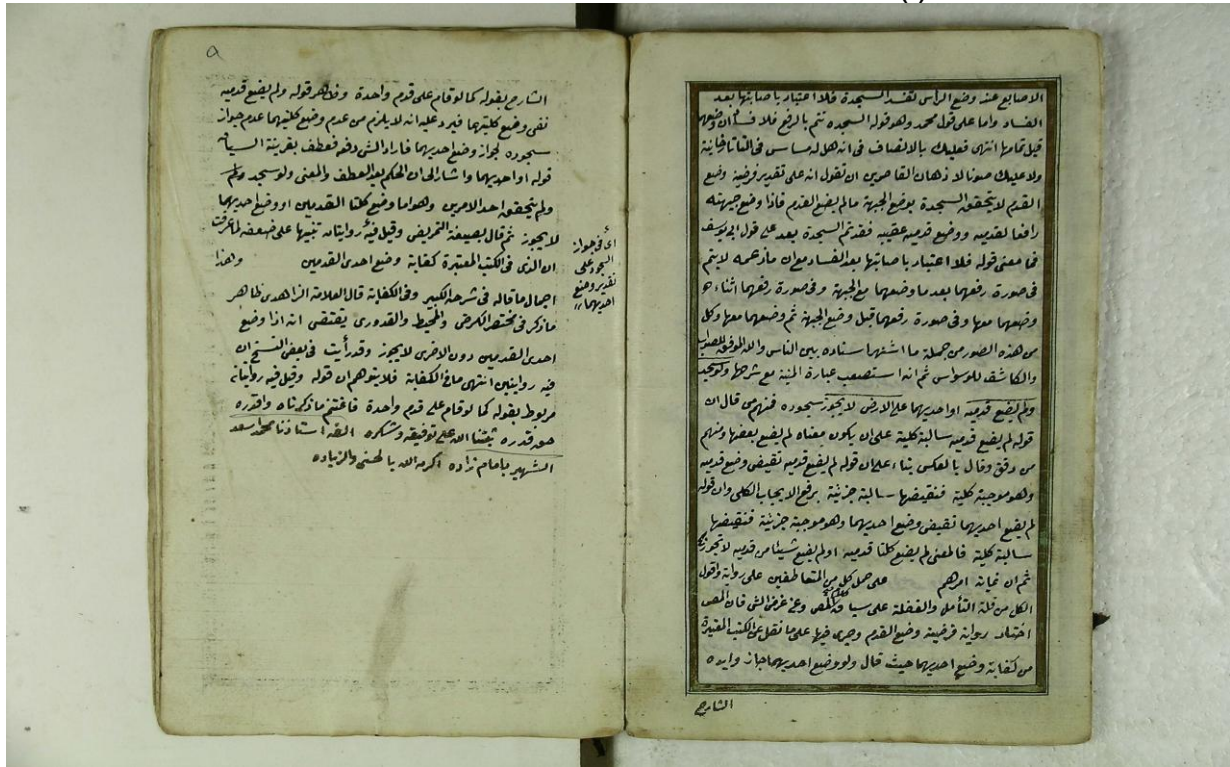 الاصابع عند وضع الراس تفسد السجدة فلا اعتبار باصابتها بعد
الفساد واما على قول محمد وهو قوله السجده تتم بالرفع فلا فساد ان وضعهما
قبل تمامها انتهى فعليك بالانصاف فى انه هل له مساس فى التاتارخانية
ولا عليك صونا لاذهان القاصرين ان تقول انه على تقدير فرضية وضع
القدم لا يتحقق السجدة بوضع الجبهة مالم يضع القدم فاذا وضع جبهته
رافعا لقدميه ووضع قدميه عقيبه فقد تم السجدة بعد على قول ابى يوسف
فما معنى قوله فلا اعتبار باصابتها بعد الفساد مع ان مازعمه لا يتم
فى صورة رفعها بعد ما وضعهما مع الجبهة وفى صورة رفعهما اثناء
وضعهما معها وفى صورة رفعهما قبل وضع الجبهة ثم وضعهما معها وكل
من هذه الصور من جملة ما اشتهر اسناده بين الناس والله الموفق للصواب
والكاشف للوسواس ثم انه استصعب عبارة المنية مع شرحها ولو سجد
ولم يضع قدميه او احديهما على الارض لا يجوز سجوده فمنهم من قال ان
قوله لم يضع قدميه سالبة كلية على ان يكون معناه لم يضع بعضها ومنهم
من دقق وقال بالعكس بناء على ان قوله لم يضع قدميه نقيض وضع قدميه
وهو موجبة كلية فنقيضها سالبة جزئية برفع الايجاب الكلى وان قوله
لم يضع احديهما نقيض وضع احديهما وهو موجبة جزئية فنقيضها
سالبة كلية فالمعنى لم يضع كلتا قدميه اولم يضع شيئا من قدميه لا تجوز
ثم ان غاية امرهم على حمل كل من المتعاطفين على رواية واقول
الكل من قلة التأمل والغفلة على سياق كلام المص وعن غرض الش فان المص
اختار رواية فرضية وضع القدم وجرى فيها على ما نقل عن الكتب المعتبرة
من كفاية وضع احديهما حيث قال ولو وضع احديهما جاز وايده
الشارح
٩
الشارح بقوله كما لو قام على قدم واحدة وظاهر قوله ولم يضع قدميه
نفى وضع كليتهما فيرد عليه انه لا يلزم من عدم وضع كليتهما عدم جواز
سجوده لجواز وضع احديهما فاراد الش دفعه فعطف بقرينة السياق
قوله او احديهما واشار الى ان الحكم بعد العطف والمعنى ولو سجد ولم
ولم يتحقق احد الامرين وهو اما وضع كلتا القدمين او وضع احديهما
لا يجوز ثم قال بصيغة التمريض وقيل فيه روايتان تنبيها على ضعفه لما عرفت
ان الذى فى الكتب المعتبرة كفاية وضع احدى القدمين وهذا
اجمال ما قاله فى شرحه الكبير وفى الكفاية قال العلامة الزاهدى ظاهر
ماذكر فى مختصر الكرخى والمحيط والقدورى يقتضى انه اذا وضع
احدى القدمين دون الاخرى لا يجوز وقد رأيت فى بعض النسخ ان
فيه روايتين انتهى ما فى الكفاية فلا يتوهم ان قوله وقيل فيه روايتان
مربوط بقوله كما لو قام على قدم واحدة فاغتنم ماذكرناه واقدره
حق قدره ثبتنا الله على توفيقه وشكره الفه استاذنا محمد اسعد
الشهير بامام زاده اكرمه الله بالحسنى والزياده
اى فى جواز
السجود على
تقدير وضع
احديهما